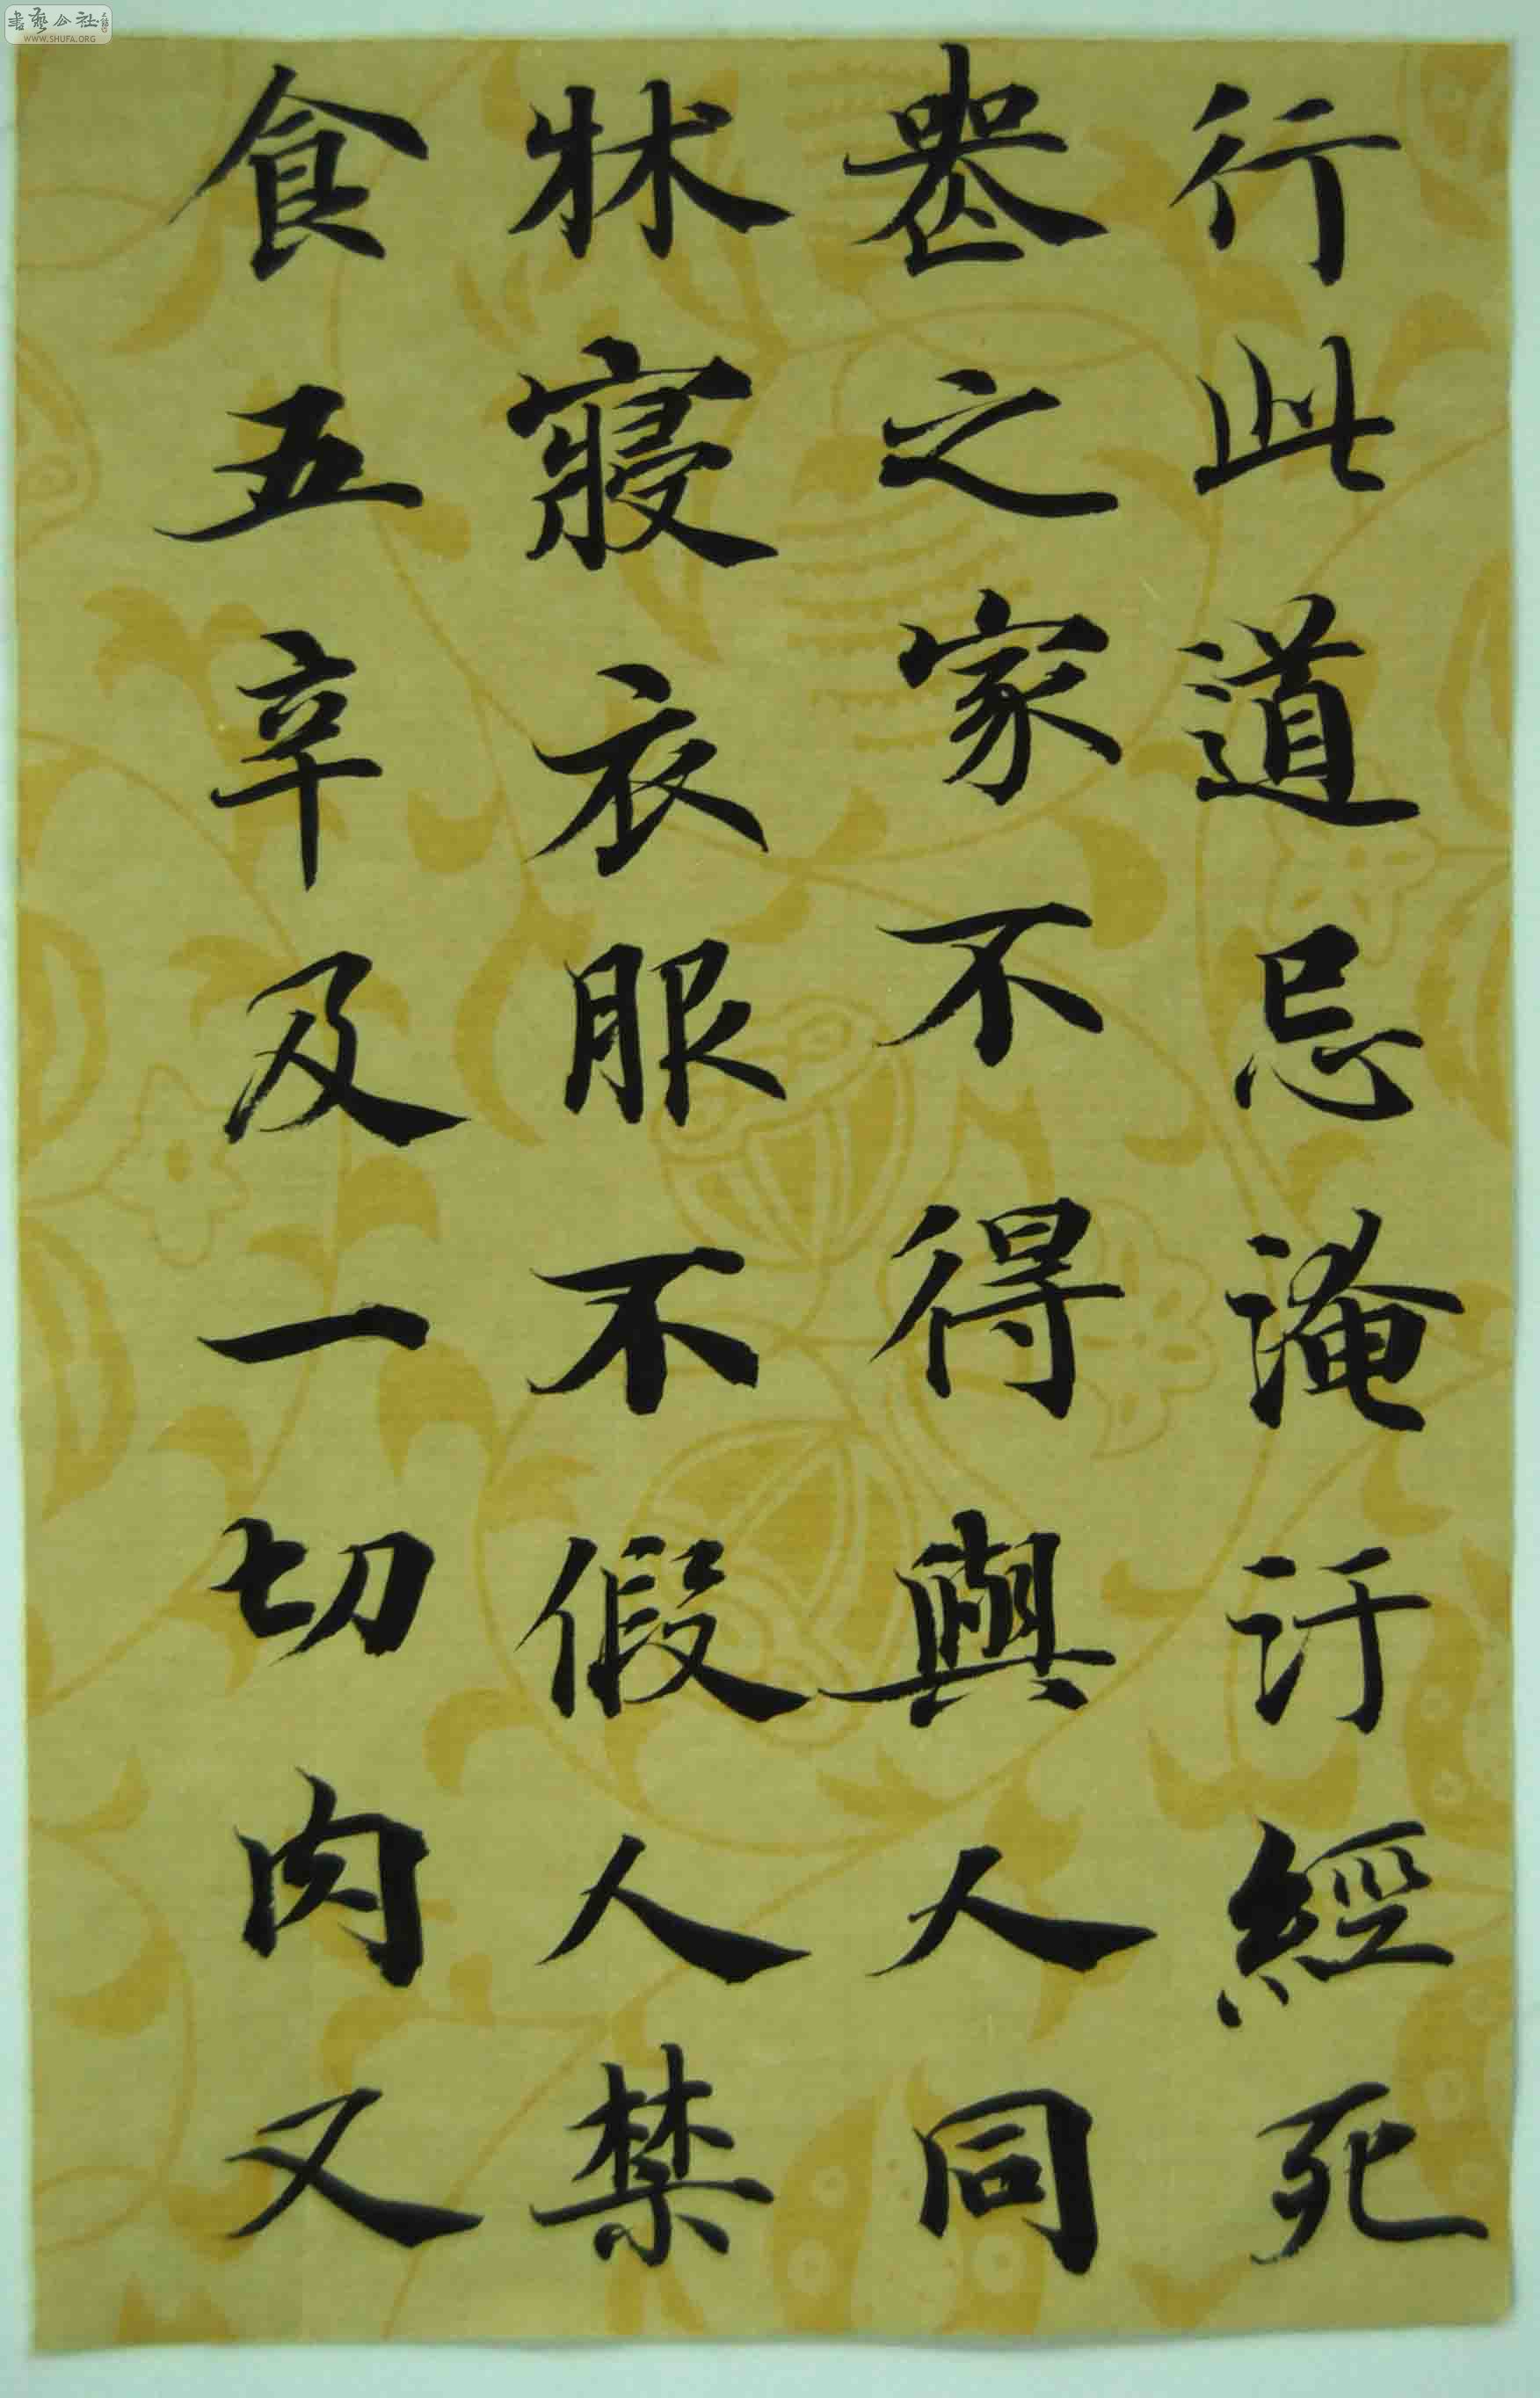 行此道忌淹汙經死
喪之家不得與人同
牀寢衣服不假人禁
食五辛及一切肉又
書藝公社
WWW.SHUFA.ORG